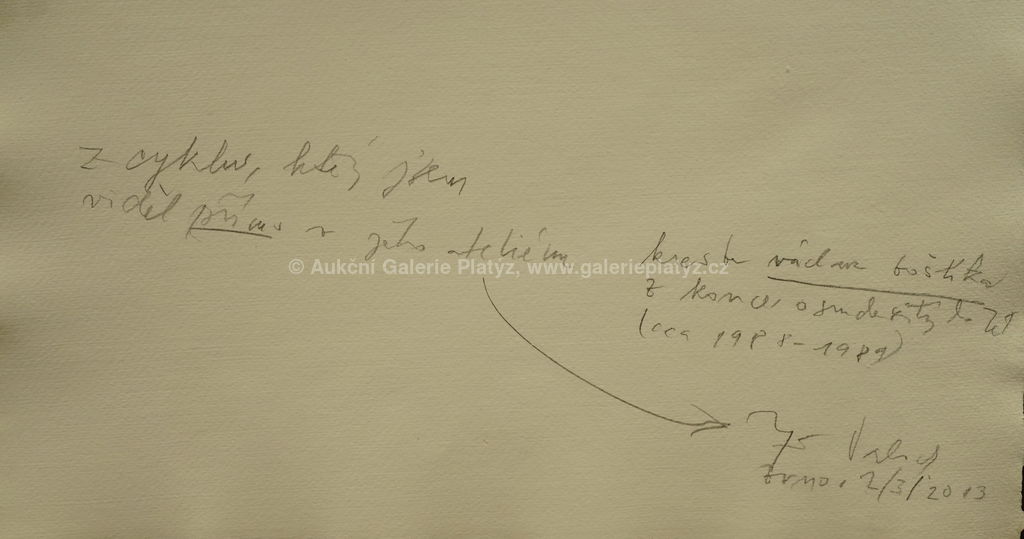 z cyklu, který jsem
viděl přímo v jeho ateliéru
© Aukční Galerie Platýz, www.galerieplatyz.cz
kresba václava boštíka
z konce osmdesátých let
(cca 1988-1989)
Brno, 2/3/2013